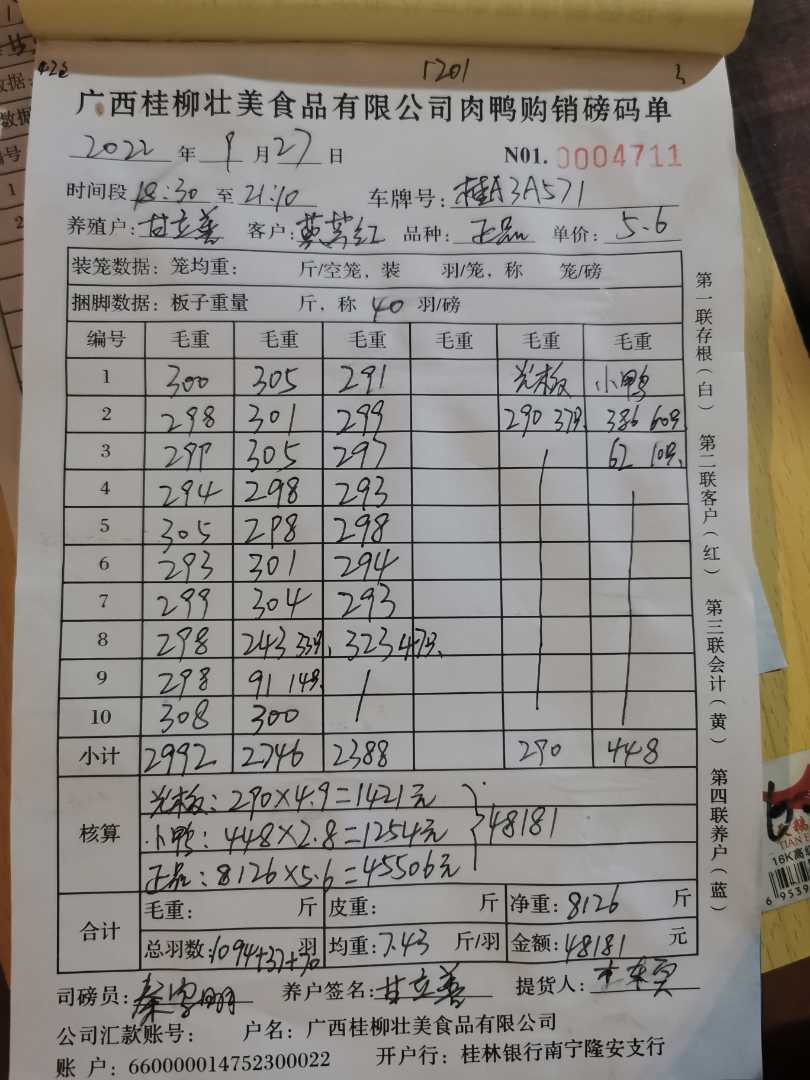 1201
广西桂柳壮美食品有限公司肉鸭购销磅码单
2022 年 9 月 27 日 N01. 0004711
时间段 18:30 至 21:10 车牌号: 桂A3A571
养殖户: 甘立善 客户: 品种: 正品 单价: 5.6
装笼数据: 笼均重: 斤/空笼, 装 羽/笼, 称 笼/磅
捆脚数据: 板子重量 斤, 称 40 羽/磅
编号 毛重 毛重 毛重 毛重 毛重 毛重
1 300 305 291 光板 小鸭
2 298 301 299 290 37只 386 60只
3 299 305 297 62 10只
4 294 298 293
5 305 298 298
6 293 301 294
7 299 304 293
8 298 243 33只 323 47只
9 298 91 14只
10 308 300
小计 2992 2746 2388 290 448
核算 光板: 290×4.9=1421元
小鸭: 448×2.8=1254元 48181
正品: 8126×5.6=45506元
合计 毛重: 斤 皮重: 斤 净重: 8126 斤
总羽数: 1094+37+70 羽 均重: 7.43 斤/羽 金额: 48181 元
司磅员: 养户签名: 甘立善 提货人:
公司汇款账号: 户名: 广西桂柳壮美食品有限公司
账 户: 660000014752300022 开户行: 桂林银行南宁隆安支行
第一联存根(白) 第二联客户(红) 第三联会计(黄) 第四联养户(蓝)